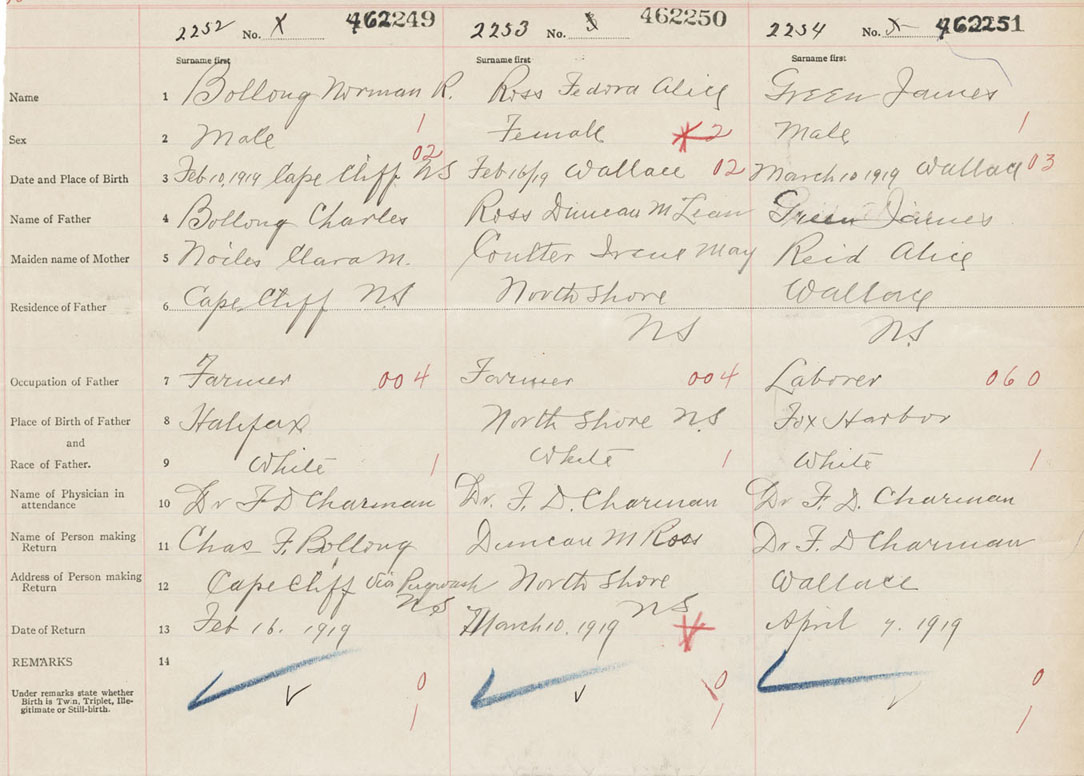 2252 No. X 462249 2253 No. 462250 2254 No. 462251
Surname first Surname first Surname first
Name 1 Bollong Norman R. Ross Fedora Alice Green James
Sex 2 Male 1 Female 2 Male 1
Date and Place of Birth 3 Feb 10, 1919 Cape Cliff NS 02 Feb 16/19 Wallace 02 March 10 1919 Wallace 03
Name of Father 4 Bollong Charles Ross Duncan McLean Green James
Maiden name of Mother 5 Noiles Clara M. Coulter Irene May Reid Alice
Residence of Father 6 Cape Cliff NS North Shore Wallace
NS NS
Occupation of Father 7 Farmer 004 Farmer 004 Laborer 060
Place of Birth of Father 8 Halifax North Shore NS Fox Harbor
and
Race of Father. 9 White 1 White 1 White 1
Name of Physician in
attendance 10 Dr F D Charman Dr. F. D. Charman Dr F. D. Charman
Name of Person making
Return 11 Chas F. Bollong Duncan M Ross Dr F. D Charman
Address of Person making
Return 12 Cape Cliff via Pugwash North Shore Wallace
NS NS
Date of Return 13 Feb 16. 1919 March 10. 1919 April 7. 1919
REMARKS 14
0 0 0
Under remarks state whether
Birth is Twin, Triplet, Ille-
gitimate or Still-birth.
1 1 1